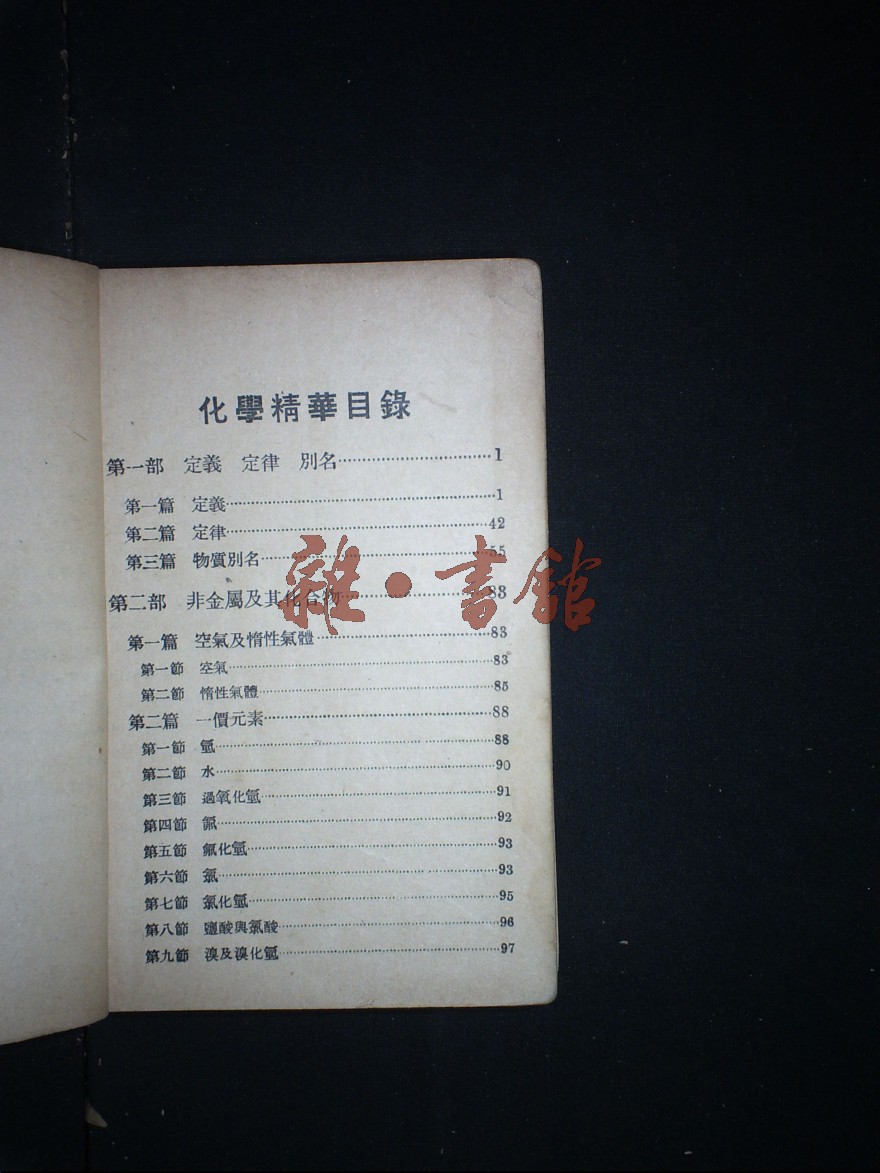 化學精華目錄
第一部 定義 定律 別名……1
第一篇 定義……1
第二篇 定律……42
第三篇 物質別名……55
第二部 非金屬及其化合物……83
第一篇 空氣及惰性氣體……83
第一節 空氣……83
第二節 惰性氣體……85
第二篇 一價元素……88
第一節 氫……88
第二節 水……90
第三節 過氧化氫……91
第四節 氟……92
第五節 氟化氫……93
第六節 氯……93
第七節 氯化氫……95
第八節 鹽酸與氯酸……96
第九節 溴及溴化氫……97
雜·書館